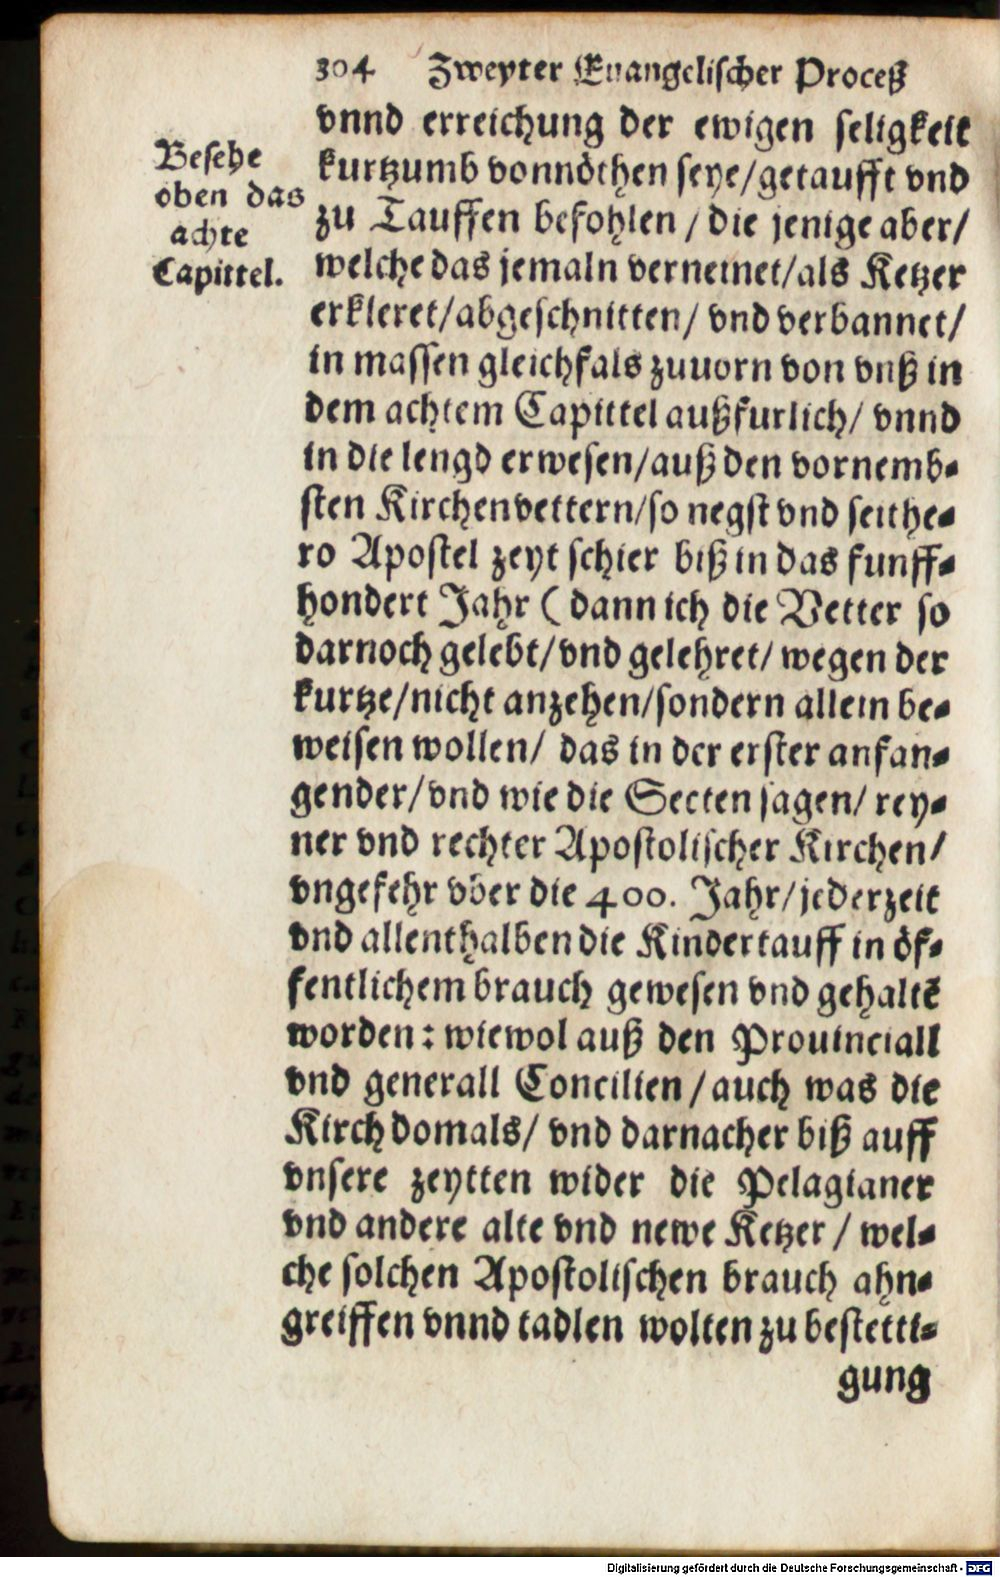 304 Zweyter Euangelischer Proceß
Besehe
oben das
achte
Capittel.
vnnd erreichung der ewigen seligkeit
kurtzumb vonnöthen seye/getaufft vnd
zu Tauffen befohlen / die jenige aber/
welche das jemaln verneinet/als Ketzer
erkleret/abgeschnitten/ vnd verbannet/
in massen gleichfals zuuorn von vnß in
dem achtem Capittel außfurlich/ vnnd
in die lengd erwesen/auß den vornemb-
sten Kirchenvettern/so negst vnd seithe-
ro Apostel zeyt schier biß in das funff-
hondert Jahr ( dann ich die Vetter so
darnoch gelebt/vnd gelehret/ wegen der
kurtze/nicht anzehen/sondern allein be-
weisen wollen/ das in der erster anfan-
gender/vnd wie die Secten sagen/ rey-
ner vnd rechter Apostolischer Kirchen/
vngefehr vber die 400. Jahr/jederzeit
vnd allenthalben die Kindertauff in öf-
fentlichem brauch gewesen vnd gehaltẽ
worden: wiewol auß den Prouinciall
vnd generall Concilien / auch was die
Kirch domals/ vnd darnacher biß auff
vnsere zeytten wider die Pelagianer
vnd andere alte vnd newe Ketzer / wel-
che solchen Apostolischen brauch ahn-
greiffen vnnd tadlen wolten zu bestetti-
gung
Digitalisierung gefördert durch die Deutsche Forschungsgemeinschaft - DFG